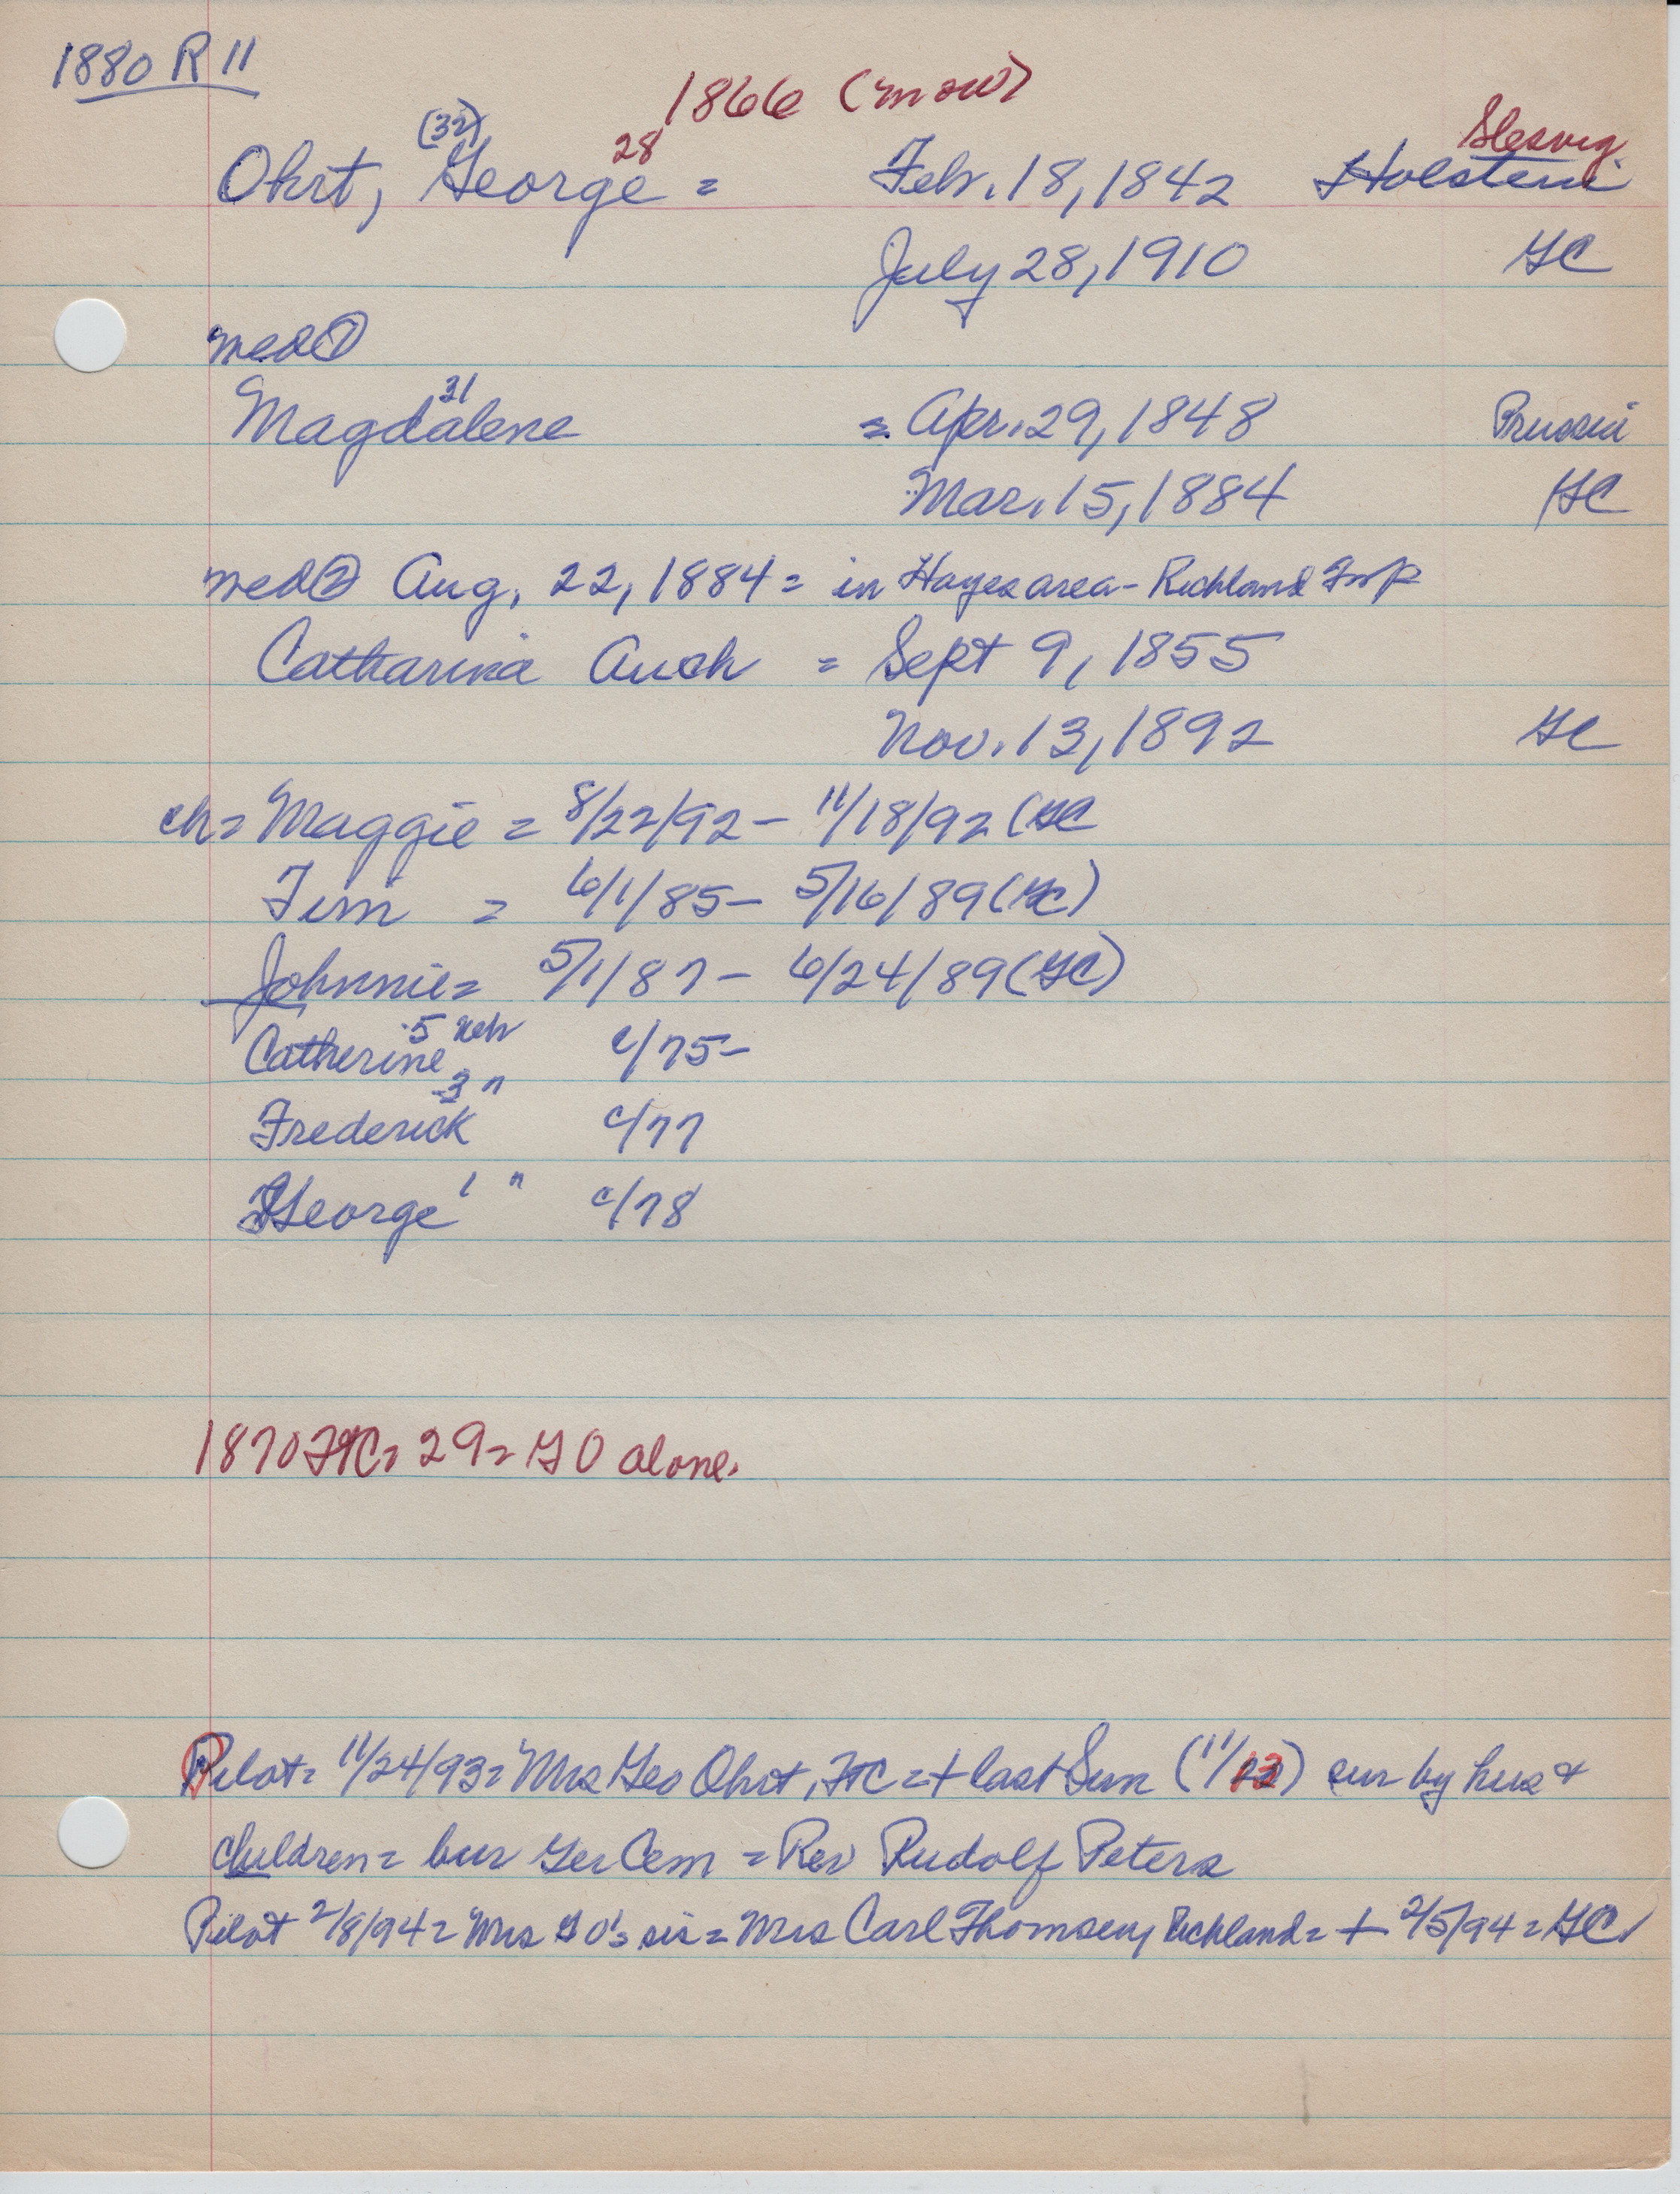 1880 R 11
1866 (mow)
(32) 28 Slesvig
Ohrt, George = Feb. 18, 1842 Holstein
July 28, 1910 GC
med ①
31
Magdalene = Apr. 29, 1848 Prussia
Mar. 15, 1884 GC
med ② Aug. 22, 1884 = in Hayes area - Richland Twp
Catharina Auch = Sept 9, 1855
Nov. 13, 1892 GC
ch = Maggie = 8/22/92 - 11/18/92 (GC
Tim = 6/1/85 - 5/16/89 (GC)
Johnnie = 5/1/87 - 6/24/89 (GC)
Catherine 5 Neb c/75 -
Frederick 3 " c/77
George 1 " c/78
1870 FC = 29 = GO alone.
Pilot = 11/24/93 = Mrs Geo Ohrt, FC = + last Sun (11/13) sur by hus +
children = bur Ger Cem = Rev Rudolf Peters
Pilot 2/8/94 = Mrs GO's sis = Mrs Carl Thomsen, Richland = + 2/5/94 = GC